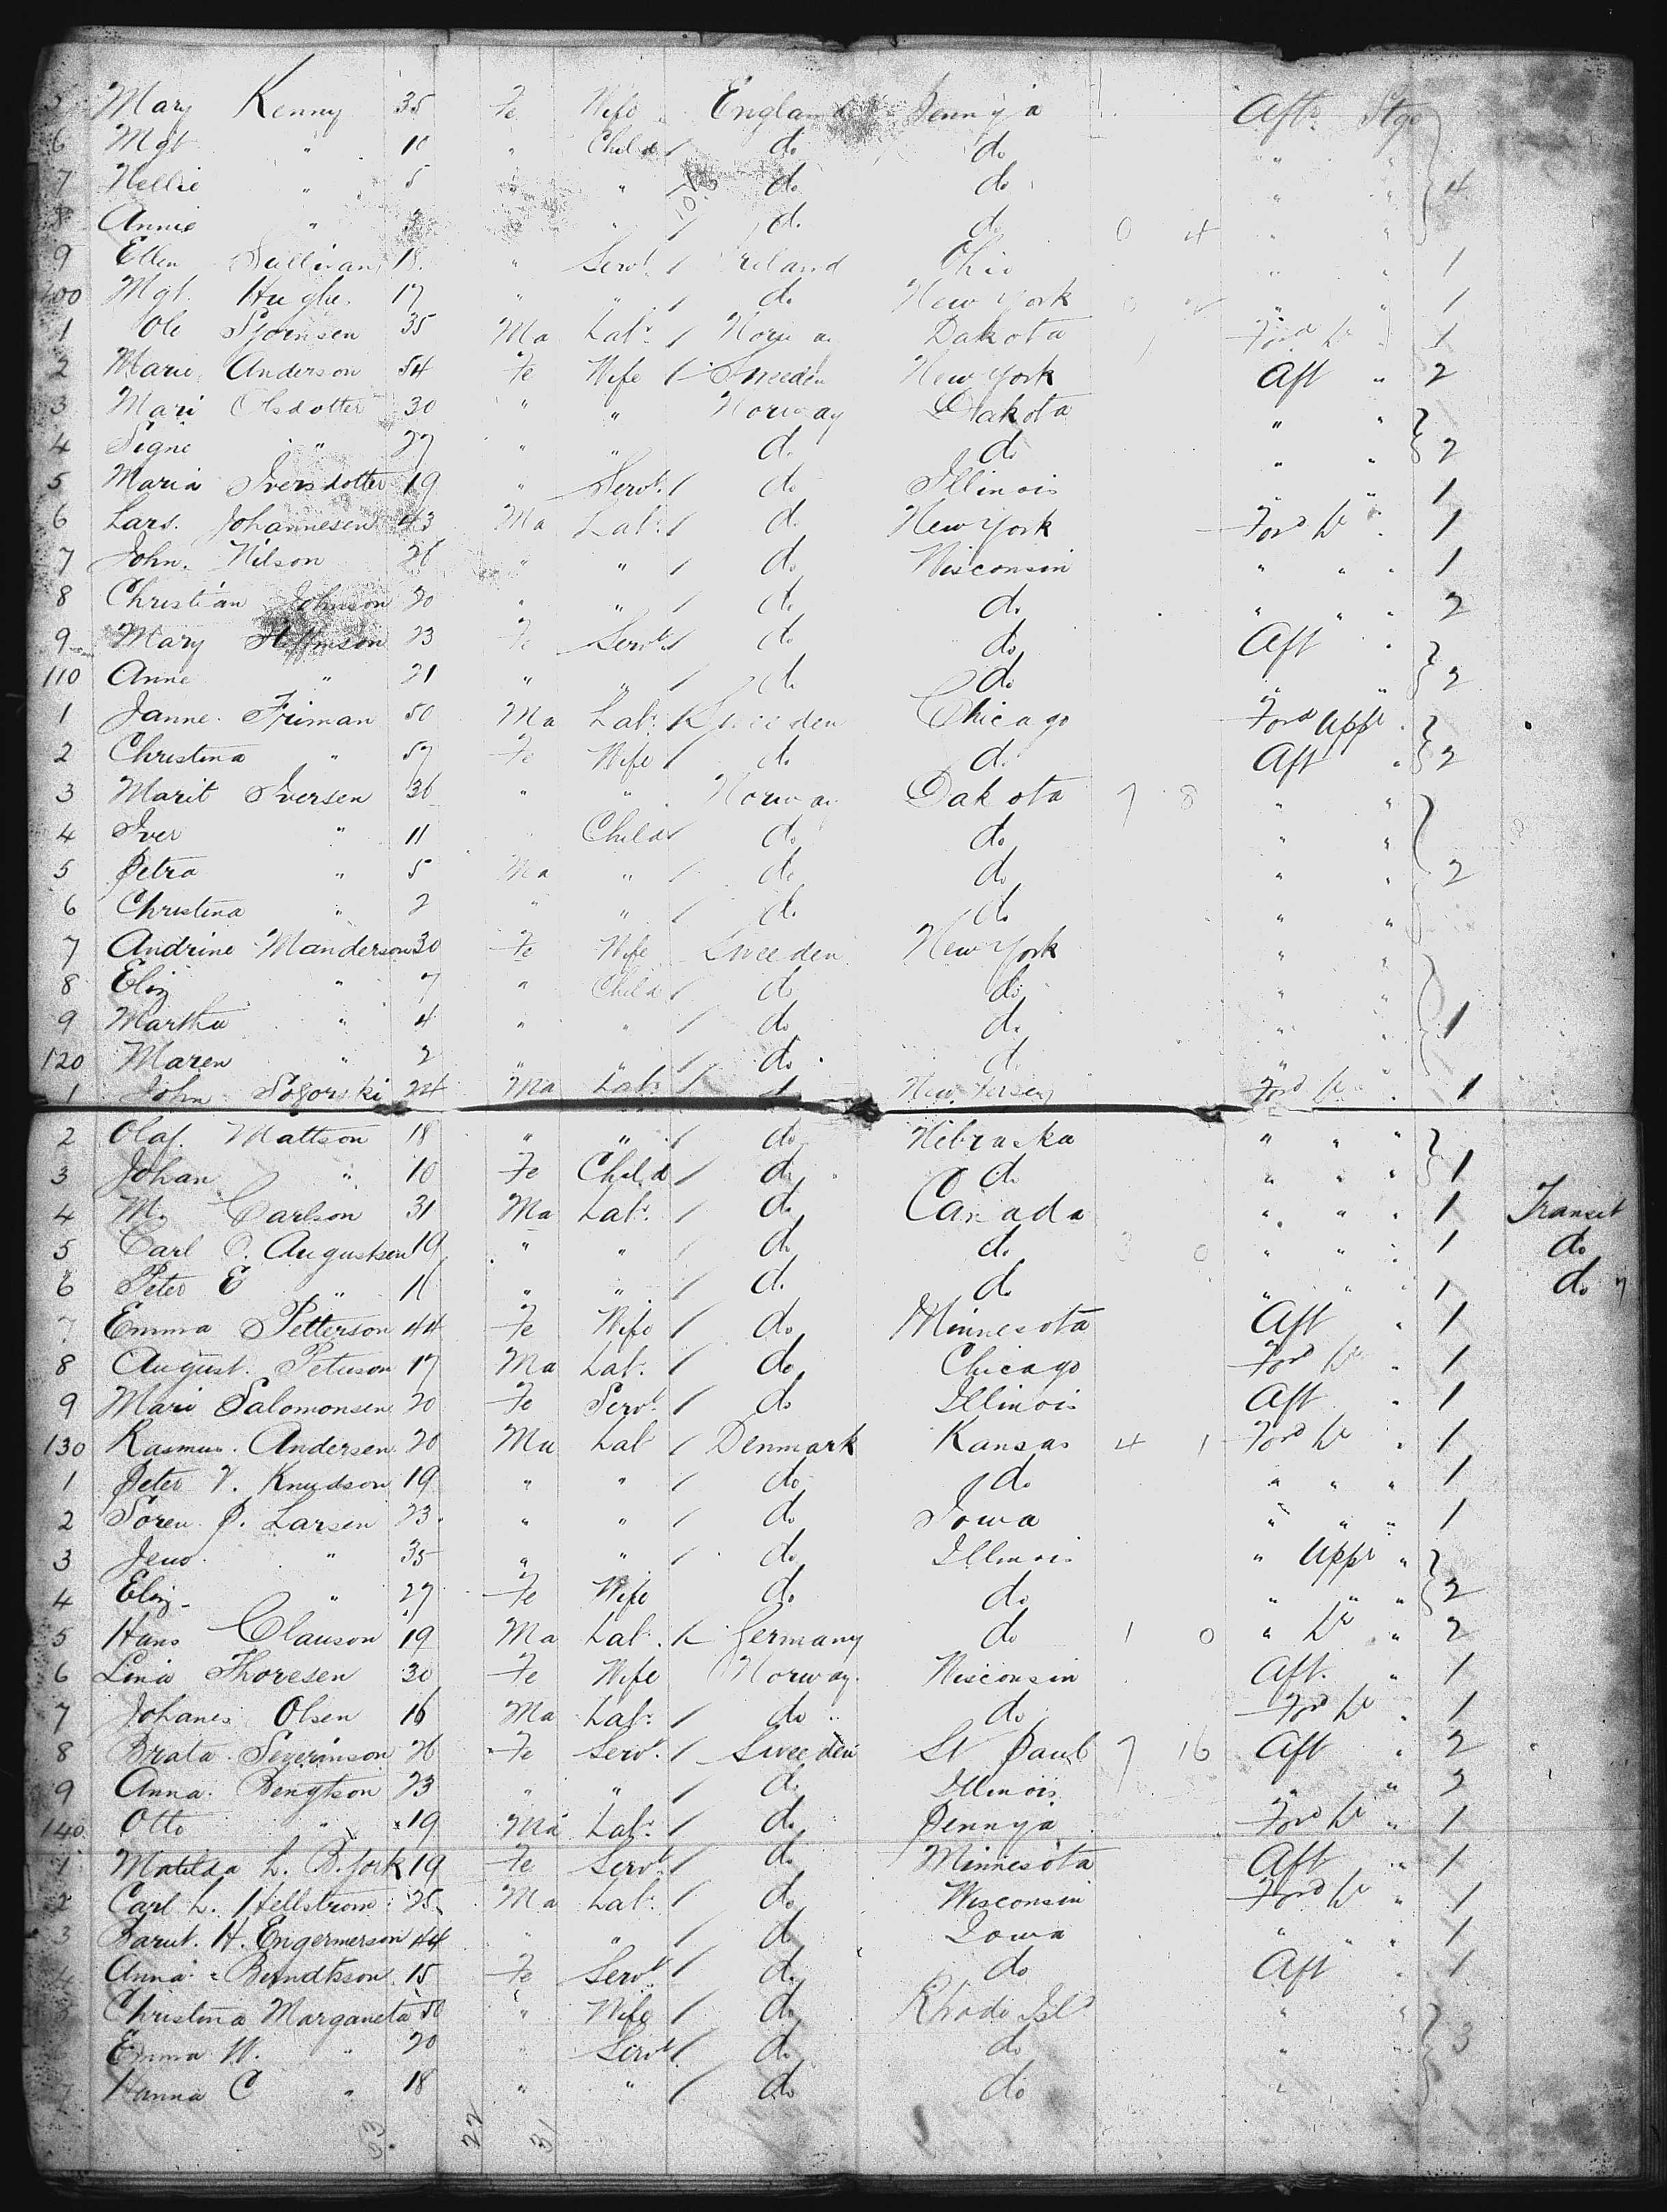 5 Mary Kenny 35 Fe Wife England Penny'a Aft. Stge
6 Mgt " 10 " Child / do do " "
7 Nellie " 5 " " / do do " " 4
8 Annie " " / do do 0 4 " "
9 Ellen Sullivan 18 " Servt / Ireland Ohio " " 1
100 Mgt. Hughes 17 " " / do New York " " 1
1 Ole 35 Ma Labr / Norway Dakota Ford Lr 1
2 Marie Anderson 54 Fe Wife / Sweeden New York Aft " 2
3 Mari Olsdotter 30 " " Norway Dakota " "
4 Signe " 27 " " do do " " 2
5 Maria Iversdotter 19 " Servt / do Illinois " " 1
6 Lars. Johannesen 43 Ma Labr / do New York Ford Lr " 1
7 John. Nilson 26 " " / do Wisconsin " " " 1
8 Christian Johnson 20 " " / do do " " " 2
9 Mary 23 Fe Servt / do do Aft "
110 Anne " 21 " " / do do " " 2
1 Janne. Friman 50 Ma Labr / Sweeden Chicago Ford Uppr "
2 Christina " 57 Fe Wife / do do Aft " 2
3 Marit Iversen 36 " " Norway Dakota 7 8 " "
4 Iver " 11 Child / do do " "
5 Petra " 5 Ma " / do do " " 2
6 Christina " 2 " " / do do " "
7 Andrine Manderson 30 Fe Wife Sweeden New York " "
8 Eliz " 7 " Child / do do " "
9 Martha " 4 " " / do do " " 1
120 Maren " 2 " " / do do "
1 John 24 Ma Labr / do New Jersey Ford Lr " 1
2 Olaf. Mattson 18 " " / do Nebraska " " "
3 Johan " 10 Fe Child / do do " " " 1
4 M. Carlson 31 Ma Labr / do Canada " " " 1 Transit
5 Carl O. Augustsen 19 " " / do do 3 0 " " " 1 do
6 Peter E " " " / do do " " " 1 do
7 Emma Petterson 44 Fe Wife / do Minnesota Aft " 1
8 August. Peterson 17 Ma Labr / do Chicago Ford Lr " 1
9 Mari Salomonsen 20 Fe Servt / do Illinois Aft " 1
130 Rasmus. Andersen 20 Ma Lab / Denmark Kansas 4 1 Ford Lr " 1
1 Peter V. Knudson 19 " " / do do " " " 1
2 Soren. P. Larsen 23 " " / do Iowa " " " 1
3 Jens. " 35 " " / do Illinois " Uppr "
4 Eliz " 27 Fe Wife do do " " " 2
5 Hans Clauson 19 Ma Labr / Germany do 1 0 " Lr " 2
6 Lina Thoresen 30 Fe Wife Norway Wisconsin Aft. " 1
7 Johanes Olsen 16 Ma Labr / do do Ford Lr " 1
8 Brata. Severinson 26 Fe Servt. / Sweeden St Paul 7 16 Aft " 2
9 Anna. Bengtson 23 " " / do Illinois " " 2
140 Otto " 19 Ma Labr / do Penny'a Ford Lr " 1
1 Matilda L. 19 Fe Servt / do Minnesota Aft " 1
2 Carl L. Hellstrom 25 Ma Labr / do Wisconsin Ford Lr " 1
3 H. Engermerson 44 " " / do Iowa " " " 1
4 Anna Berndtsson 15 Fe Servt / do do Aft " 1
5 Christina Margareta 50 " Wife / do Rhode Isld " "
Emma W. " 20 " Servt / do do " " 3
7 Hanna C " 18 " " / do do " "
63 22 31